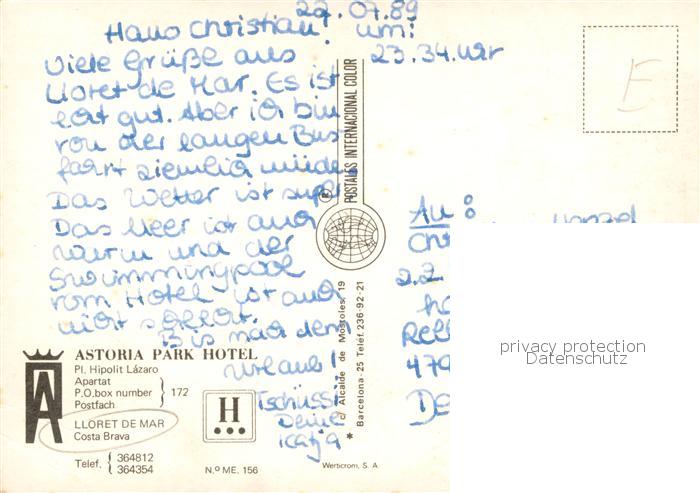 29.07.89
um:
23.34.uhr
Hallo Christian!
Viele Grüße aus
Lloret de Mar. Es ist
echt gut. Aber ich bin
von der langen Bus
fahrt ziemlich müde.
Das Wetter ist super
Das Meer ist auch
warm und der
Swimmingpool
vom Hotel ist auch
nicht schlecht.
Bis nach dem
Urlaub!
Tschüssi
Deine
Katja
ASTORIA PARK HOTEL
Pl. Hipolit Lázaro
Apartat
P.O.box number } 172
Postfach
LLORET DE MAR
Costa Brava
Telef. { 364812
364354
H
N.º ME. 156
POSTALES INTERNACIONAL COLOR
®
c/ Alcalde de Mostoles, 19
Barcelona - 25 Teléf. 236-92-21
*
Werticrom, S. A.
E
An:
Chr
z.Z
Ho
479
De
privacy protection
Datenschutz